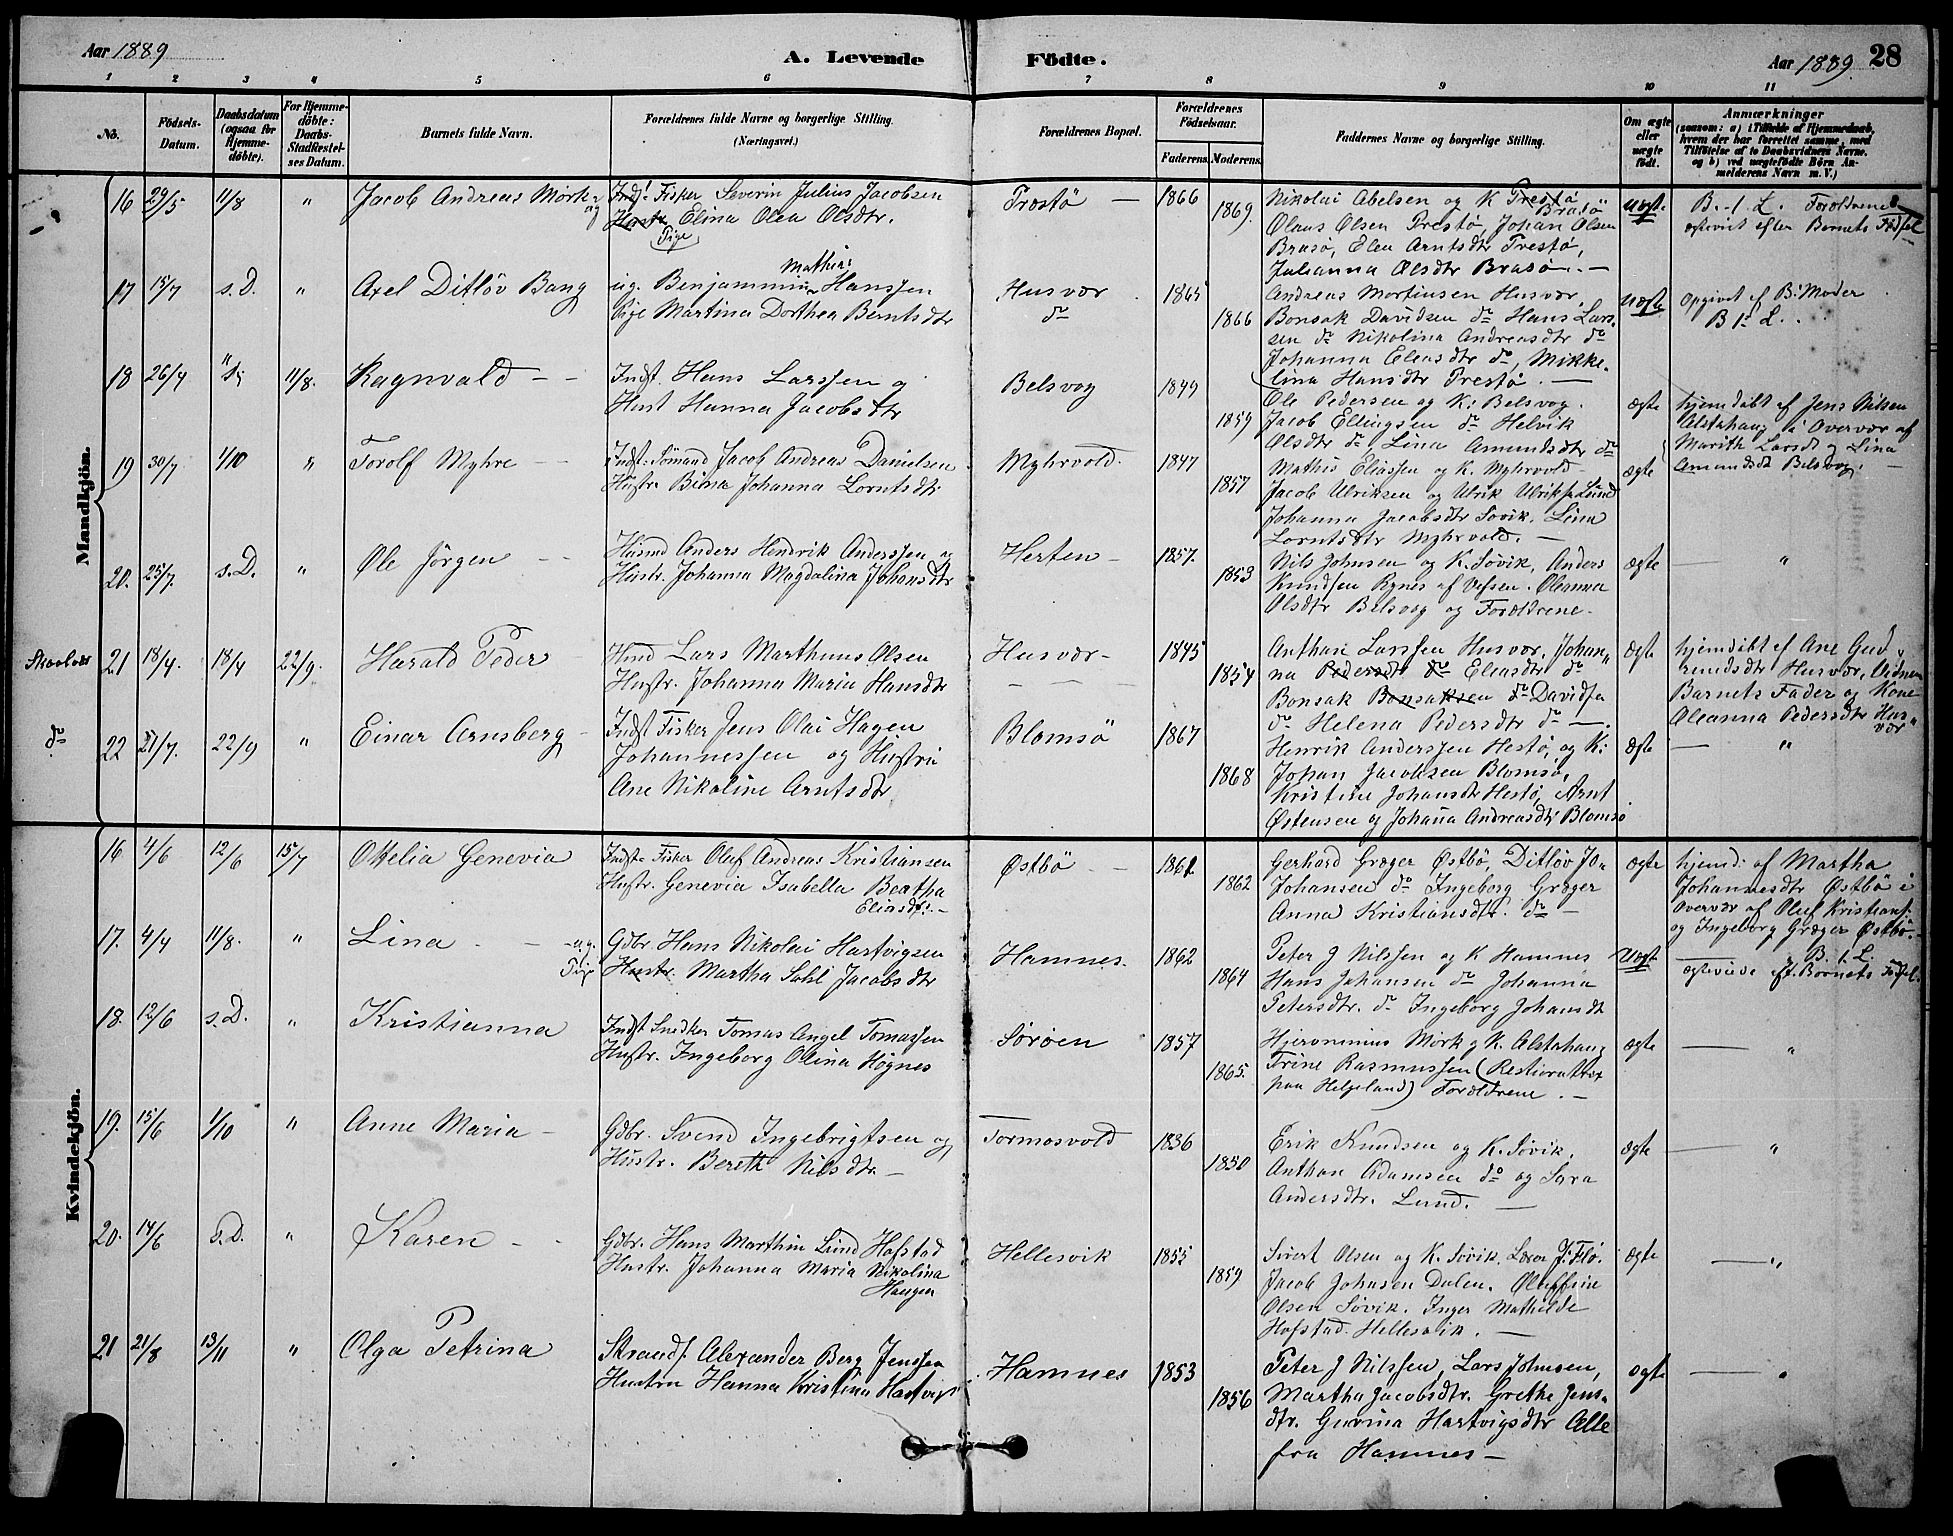 Aar 1889
A. Levende Födte.
Aar 1889. 28
1 2 3 4 5 6 7 8 9 10 11
No.
Födsels-Datum.
Daabsdatum (ogsaa for Hjemmedöbte).
For Hjemmedöbte: Daabs-Stadfæstelses Datum.
Barnets fulde Navn.
Forældrenes fulde Navne og borgerlige Stilling. (Næringsvei.)
Forældrenes Bopæl.
Forældrenes Födselsaar.
Faderens. Moderens.
Faddernes Navne og borgerlige Stilling.
Om ægte eller uægte födt.
Anmærkninger
(saasom: a) i Tilfælde af Hjemmedaab, hvem der har forrettet samme, med Tilföielse af to Daabsvidners Navne, og b) ved uægtefödte Börn Anmelderens Navn m. V.)
Mandkjön.
16 29/5 11/8 " Jacob Andreas Mork
Inds. Fisker Severin Julius Jacobsen og
Hustr. Elina Olea Olsdtr.
Pige
Træstö — 1866 1869.
Nikolai Abelsen og K Træstö
Brasö
Olaus Olsen Træstö, Johan Olsen
Brasö, Elen Arntsdtr Træstö,
Julianna Olsdtr Brasö. —
Uægte
B. 1. L. Forældrene
ægteviet efter Barnets Födsel
17 15/7 s. D. " Axel Ditlöv Bang
Mathias
ug. Benjamin Hanssen
Pige Martina Dorthea Berntsdtr
Husvær do 1865 1866
Andreas Mortinsen Husvær,
Bonsak Davidsen do Hans Lars-
sen do Nikolina Andreasdtr do
Johanna Eleasdtr do, Mikke-
lina Hansdtr Træstö. —
Uægte
Opgivet af B. Moder
B 1. L.
18 26/4 " 11/8. Ragnvald — —
Indst. Hans Larssen og
Hust Hanna Jacobsdtr
Belsvog 1849 1859
Ole Pedersen og K: Belsvog.
Jacob Ellingsen do Helvik
Olsdtr do, Lina Amundsdtr do
ægte
hjemdöbt af Jens Nilsen
Alstahaug i Overvær af
Marith Larsdt og Lina
Amundsdt Belsvog. —
19 30/7 1/10 " Torolf Myhre —
Indst. Sömand Jacob Andreas Danielsen
Hustr. Bina Johanna Lorntsdtr
Myhrvold. 1847 1857
Mathis Eliassen og K. Myhrvold
Jacob Ulriksen og Ulrik Ulriks. Lund
Johanna Jacobsdtr Sövik. Lina
Lorntsdtr Myhrvold. —
ægte
20. 25/7. s. D. " Ole Jörgen — —
Husmd Anders Hendrik Anderssen og
Hustr. Johanna Magdalina Johansdtr
Herten — 1857. 1853
Nils Johnsen og K. Sövik, Anders
Knudsen Rynes af Vefsen. Oleanna
Olsdtr Belsvog og Forældrene.
ægte — "
21 18/4. 18/4 22/9. Harald Peder —
Hmd Lars Marthinus Olsen
Hustr. Johanna Maria Hansdtr
Husvær — 1845 1854
Anthon Larssen Husvær, Johan-
na Pedersdtr do Eliasdtr do
Bonsak Bonsaksen do Davidsen
do Helena Pedersdtr do —.
ægte
hjemdöbt af Ane Gud-
mundsdtr Husvær, Vidner
Barnets Fader og Kone
Oleanna Pedersdtr Hus-
vær
do 22 21/7. 22/9 " Einar Arnsberg —
Indst Fisker Jens Olai Hagen
Johannessen og Hustru
Ane Nikoline Arntsdtr
Blomsö 1867 1868
Henrik Anderssen Hestö, og K:
Johan Jacobsen Blomsö,
Kristine Johansdtr Hestö, Arnt
Östensen og Johana Andreasdtr Blomsö
ægte — "
Kvindekjön.
16 4/6 12/6 15/7 Otelia Genevia
Indst. Fisker Oluf Andreas Kristiansen
Hustr. Genevia Isabella Beatha
Eliasdtr. —
Østbö — 1861 1862
Gerhard Græger Østbö, Ditlöv Jo-
Johansen do Ingeborg Græger
Anna Kristiansdtr. do —
ægte
hjemd: af Martha
Johannesdtr Østbö i
Overvær af Oluf Kristians:
og Ingeborg Græger Østbö.
17. 4/4 11/8. " Lina — — u.g.
Pige
Gdbr Hans Nikolai Hartvigsen
Hustr. Martha Sahl Jacobsdtr
Hamnes. 1862 1864
Peter J Nilssen og K Hamnes
Hans Johansen do Johanna
Petersdtr. do Ingeborg Johansdt
Uægte
B. 1. L.
ægteviede eft. Barnets Födsel.
18. 12/6 s. D. " Kristianna
Indst Snedker Tomas Angel Tomassen
Hustr. Ingeborg Olina Högnes
Söröen 1857 1865.
Hjeronimus Mörk og K. Alstahaug
Trine Rasmussen
paa Helgeland) Forældrene. —
ægte — "
19. 15/6 1/10 " Anne Maria —
Gdbr. Svend Ingebrigtsen og
Hustr. Bereth Nilsdtr —
Tormosvold 1836 1850
Erik Knudsen og K. Sövik,
Anthon Adamsen do og Sara
Andersdtr. Lund. —
ægte — "
20. 14/6 s. D. " Karen — —
Gdbr. Hans Marthin Lund Hofstad
Hustr. Johanna Maria Nikolina
Haugen
Hellesvik 1855 1859
Sivert Olsen og K. Sövik,
Jacob Johnsen Dalen. Oluffine
Olsen Sövik. Inger Mathilde
Hofstad. Hellesvik. —
ægte — "
21 21/8 13/11 " Olga Petrina
Strands. Alexander Berg Jenssen
Hustru Hanna Kristina Hartvigs
Hamnes 1853 1856
Peter J Nilssen, Lars Johnsen,
Martha Jacobsdtr. Grethe Jens-
dtr. Gurina Hartvigsdtr Alle
fra Hamnes —
ægte — "